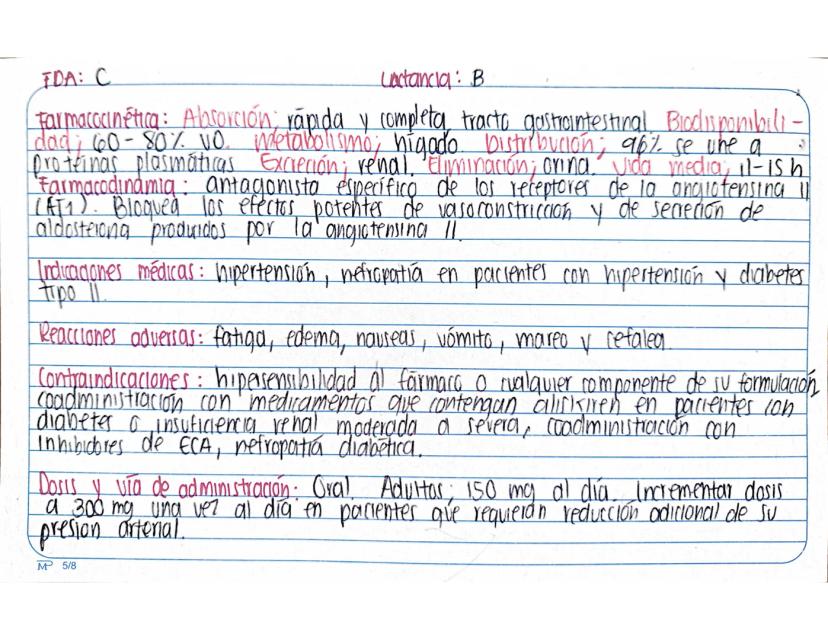 FDA: C Lactancia: B
Farmacocinética: Absorción; rápida y completa tracto gastrointestinal Biodisponibili-
dad; 60-80% VO. Metabolismo; hígado. Distribución; 96% se une a
proteínas plasmáticas Excreción; renal. Eliminación; orina. Vida media; 11-15 h
Farmacodinamia: antagonista específico de los receptores de la angiotensina II
(AT1). Bloquea los efectos potentes de vasoconstricción y de secreción de
aldosterona producidos por la angiotensina II.
Indicaciones médicas: hipertensión, nefropatía en pacientes con hipertensión y diabetes
tipo II
Reacciones adversas: fatiga, edema, nauseas, vómito, mareo y cefalea.
Contraindicaciones: hipersensibilidad al fármaco o cualquier componente de su formulación,
coadministración con medicamentos que contengan aliskiren en pacientes con
diabetes o insuficiencia renal moderada a severa, coadministración con
inhibidores de ECA, nefropatía diabética.
Dosis y vía de administración: Oral. Adultos; 150 mg al día. Incrementar dosis
a 300 mg una vez al día en pacientes que requieran reducción adicional de su
presión arterial.
MP 5/8